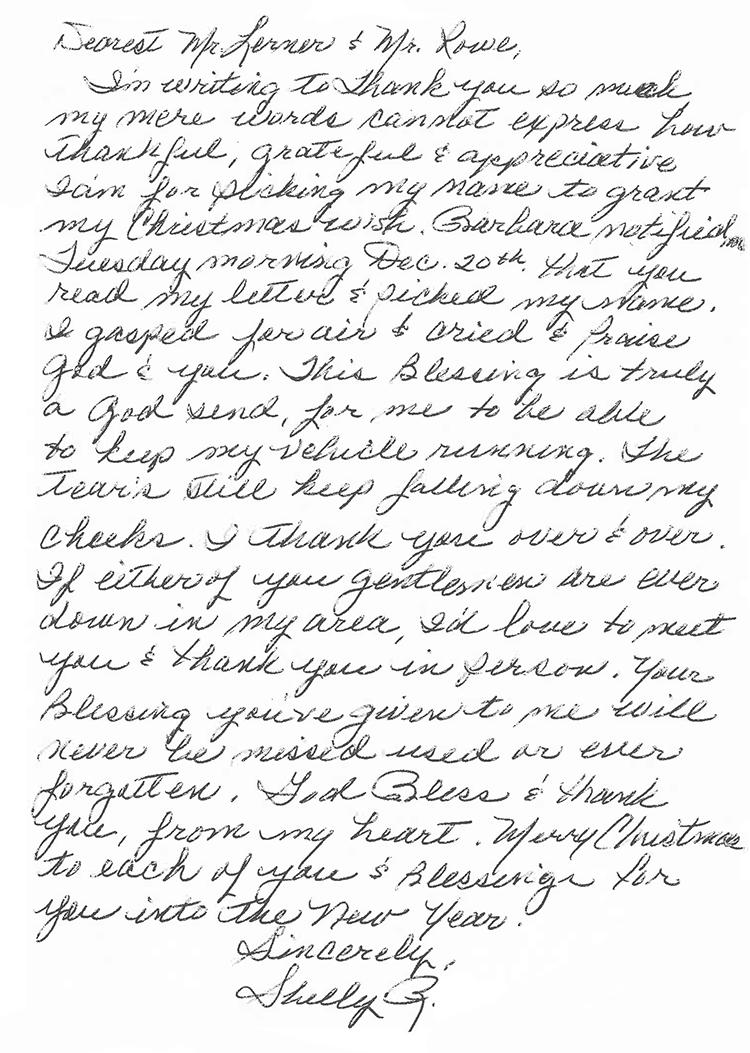 Dearest Mr. Lerner & Mr. Rowe,
I'm writing to thank you so much
my mere words cannot express how
thankful, grateful & appreciative
I am for picking my name to grant
my Christmas wish. Barbara notified me
Tuesday morning Dec. 20th. that you
read my letter & picked my name.
I gasped for air & cried & Praise
God & you. This Blessing is truly
a God send, for me to be able
to keep my vehicle running. The
tear's still keep falling down my
cheeks. I thank you over & over.
If either of you gentlemen are ever
down in my area, I'd love to meet
you & thank you in person. Your
Blessing you've given to me will
never be missed used or ever
forgotten. God Bless & thank
you, from my heart. Merry Christmas
to each of you & Blessings for
you into the New Year.
Sincerely,
Shelly R.